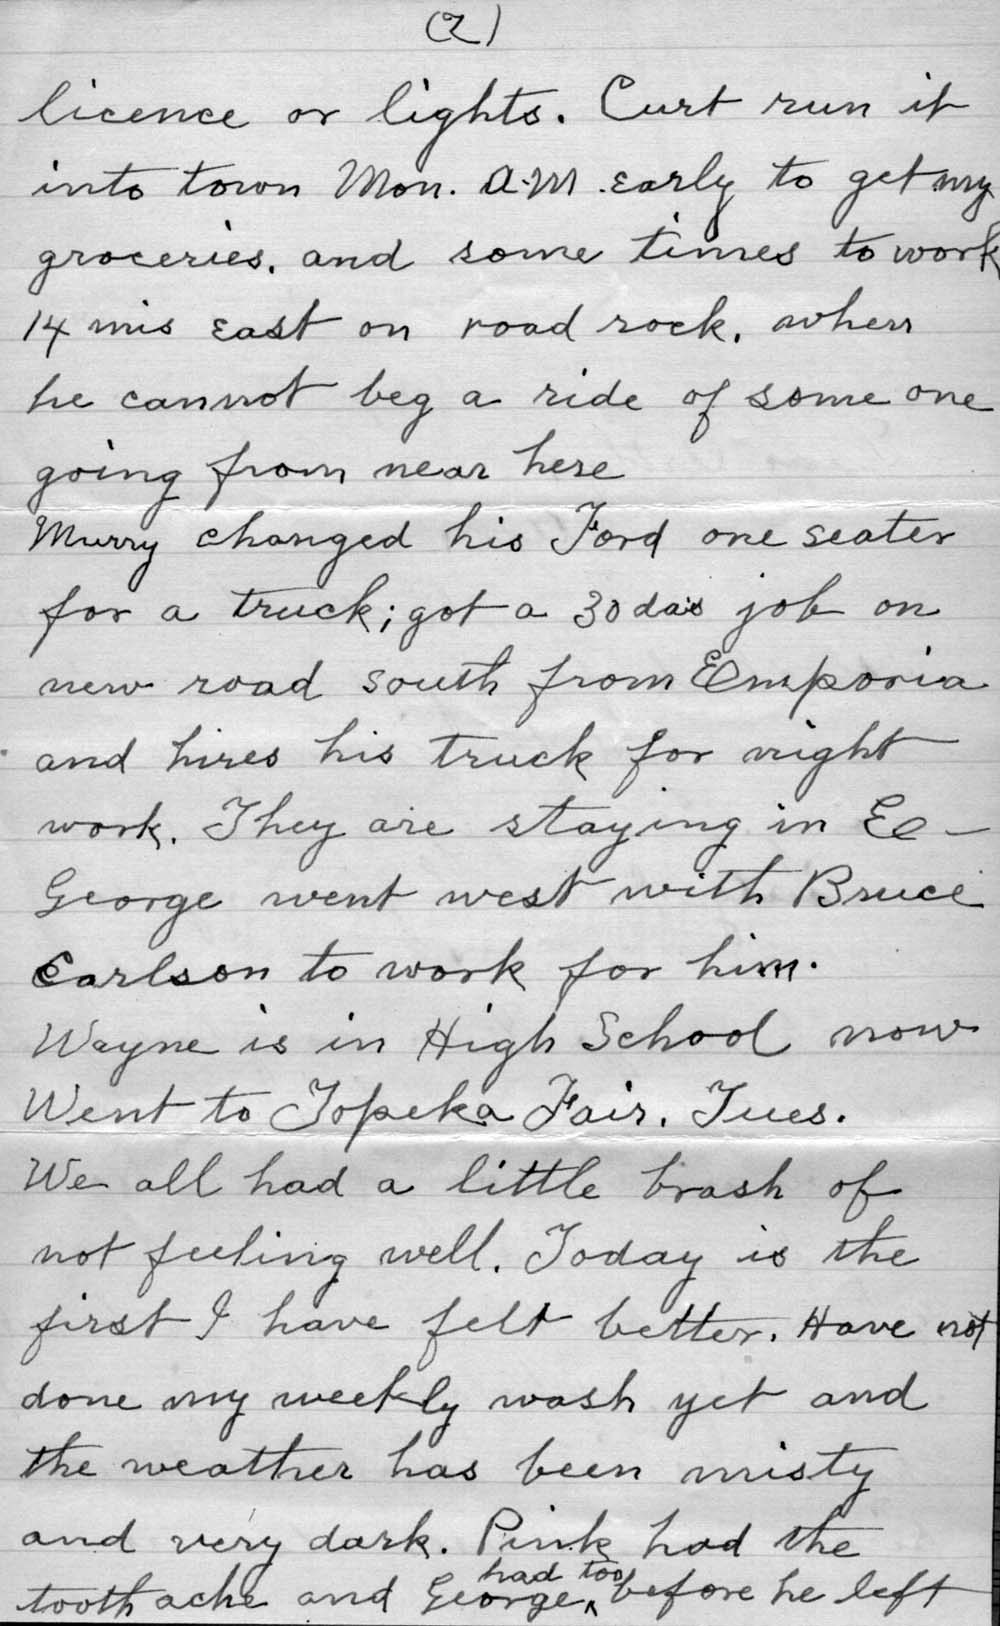 (2)
licence or lights. Curt run it
into town Mon. A.M. early to get my
groceries. and some times to work
14 mis east on road rock, when
he cannot beg a ride of some one
going from near here
Murry changed his Ford one seater
for a truck; got a 30 da's job on
new road south from Emporia
and hires his truck for night
work. They are staying in E—
George went west with Bruce
Carlson to work for him.
Wayne is in High School now
Went to Topeka Fair. Tues.
We all had a little brash of
not feeling well. Today is the
first I have felt better. Have not
done my weekly wash yet and
the weather has been misty
and very dark. Pink had the
had too
tooth ache and George ‸ before he left